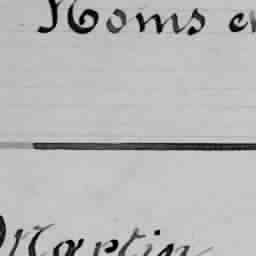 Noms e
Martin